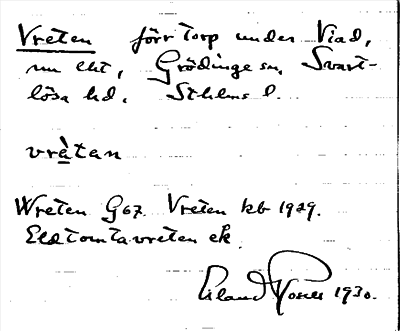 Vreten förr torp under Viad,
nu eht, Grödinge sn, Svart-
lösa hd. Sthlms l.
vrètan
Wreten G67. Vreten kb 1929.
Eldtomtavreten ek.
Erland Rosell 1930.